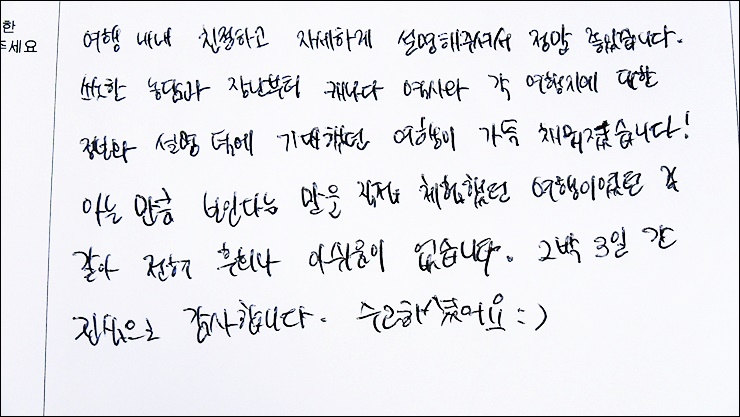 한
주세요
여행 내내 친절하고 자세하게 설명해주셔서 정말 좋았습니다.
쏘쏘한 농담과 장난부터 캐나다 역사와 각 여행지에 대한
정보와 설명 덕에 기대했던 여행이 가득 채워졌습니다!
아는 만큼 보인다는 말을 직접 체험했던 여행이었던 것
같아 전혀 후회나 아쉬움이 없습니다. 2박 3일 간
진심으로 감사합니다. 수고하셨어요 :)